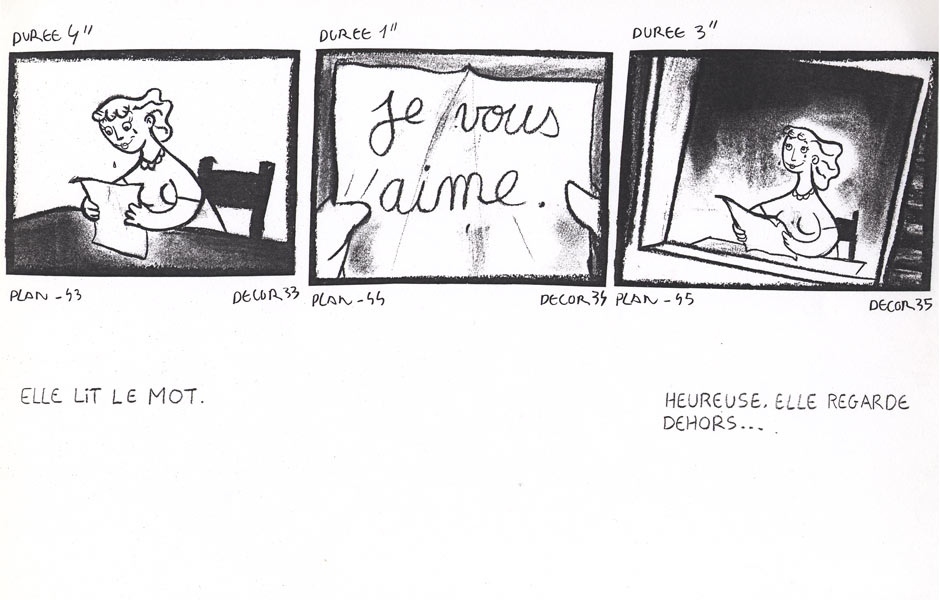 DUREE 4"
DUREE 1"
DUREE 3"
Je vous
aime.
PLAN - 43
DECOR 33
PLAN - 44
DECOR 34
PLAN - 45
DECOR 35
ELLE LIT LE MOT.
HEUREUSE. ELLE REGARDE
DEHORS...